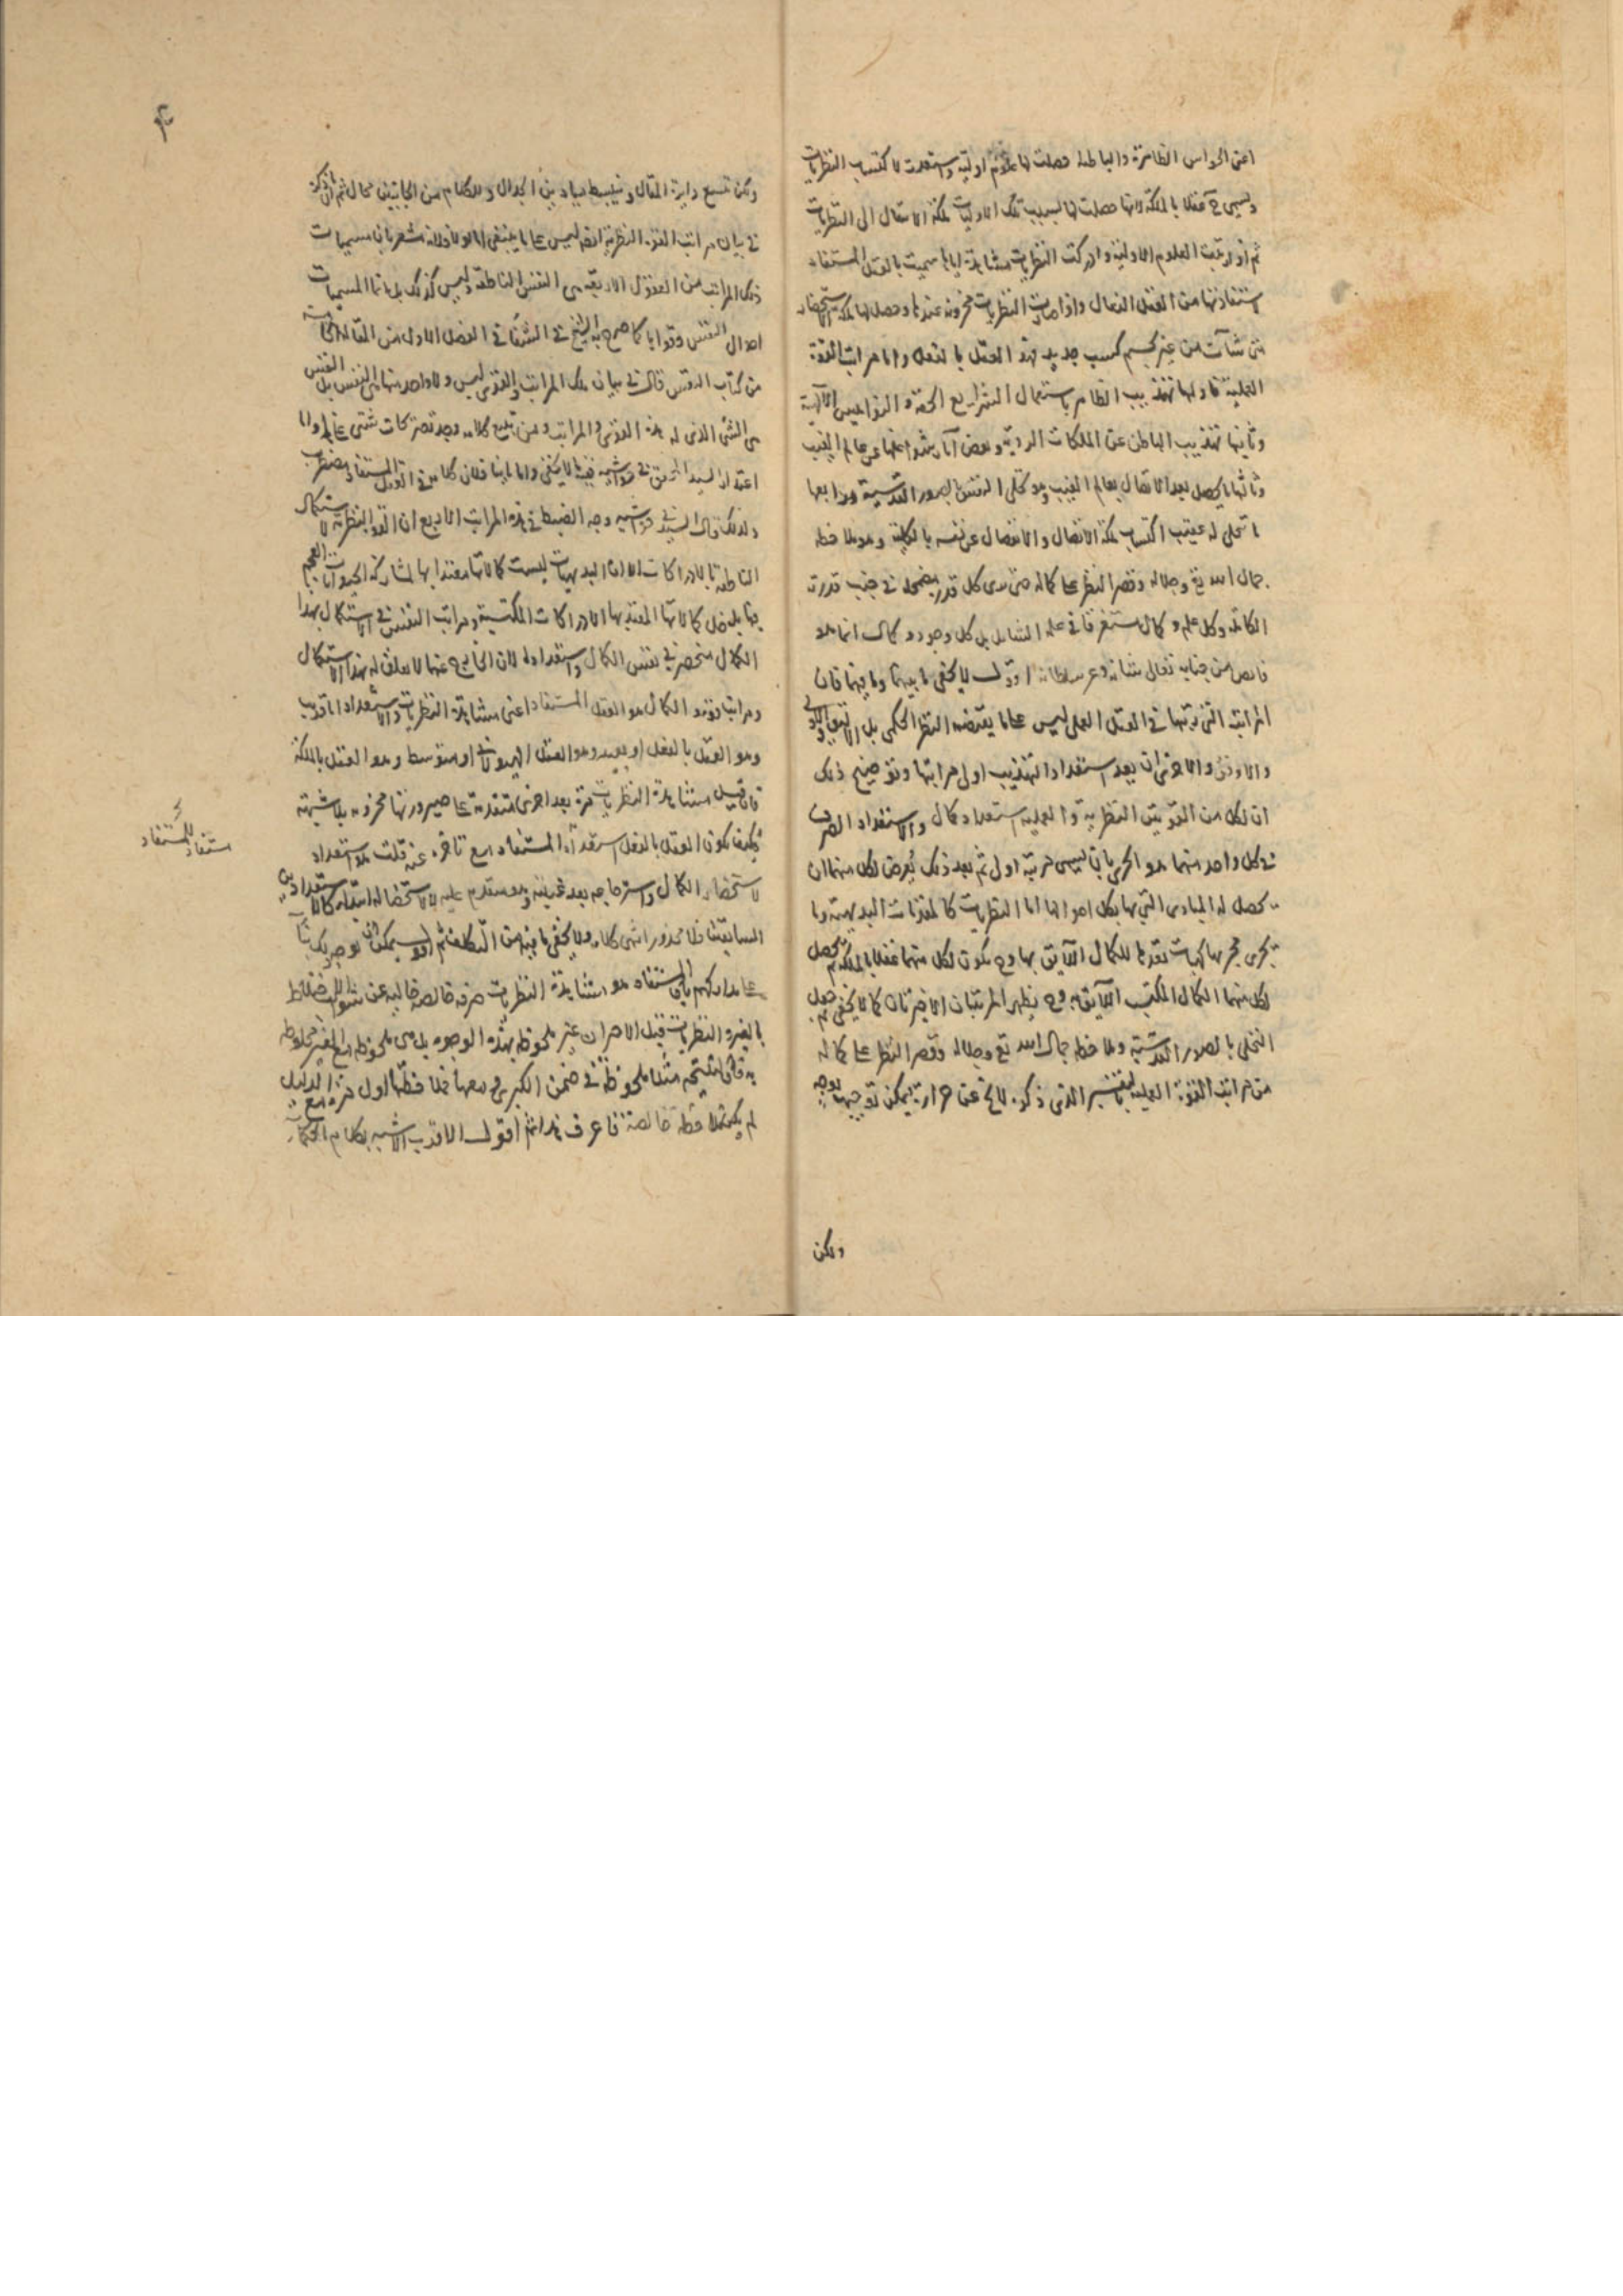 اعنى الحواس الظاهرة والباطنة حصلت لها علوم اولية واستعدت لاكتساب النظريات
وتسمى ح عقلا بالملكة لانها حصلت لها بسبب تلك الاوليات ملكة الانتقال الى النظريات
ثم اذا رتبت العلوم الاولية وادركت النظريات مشاهدة اياها سميت بالعقل المستفاد
لاستفادتها من العقل الفعال واذا صارت النظريات مخزونة عندها وحصل لها ملكة الاستحضار
متى شاءت من غير تجشم كسب جديد فهو العقل بالفعل واما مراتب القوة
العملية فاولها تهذيب الظاهر باستعمال الشرايع الحقة و النواميس الالهية
وثانيها تهذيب الباطن عن الملكات الردية ونقض آثار شواغلها عن عالم الغيب
وثالثها ما يحصل بعد الاتصال بعالم الغيب وهو تحلى النفس بالصور القدسية ورابعها
ما تجلى له عقيب اكتساب ملكة الاتصال والانفصال عن نفسه بالكلية وهو ملاحظة
جمال الله تع وجلاله وقصر النظر على كماله حتى يرى كل قدرة مضمحلة في جنب قدرته
الكاملة وكل علم و كمال مستغرقا في علمه الشامل بل كل وجود و كمال انما هو
فايض من جنابه تعالى شانه وعز سلطانه اقول لا يخفى ما بينهما وما فيهما فان
المراتب التى رتبها فى العقل العملى ليس على ما يقتضيه النظر الحكمى بل الاليق والاولى
والاوفق والاحرى ان يعد استعداد التهذيب اولى مراتبها وتوضيح ذلك
ان لكل من القوتين النظرية والعملية استعداد كمال والاستعداد الصرف
في كل واحد منهما هو الحرى بان يسمى مرتبة اولى ثم بعد ذلك يعرض لكل منهما ان
يحصل له المبادى التى بها يكمل احوالها اما النظريات كالمقدمات البديهية وما
يجرى مجريها كهيات تعدها للكمال اللايق بها وح يكون لكل منهما عقلا بالملكة ثم يحصل
لكل منهما الكمال المكتسب اللايق به وح يظهر المرتبتان الاخيرتان كما لا يخفى ثم جعل
التحلى بالصور القدسية وملاحظة جمال الله تع وجلاله وقصر النظر على كماله
من مراتب القوة العملية بالتفسير الذى ذكره لا يخ عن حزازة يمكن توجيهها بوجه
ولكن
۴
ولكن تتسع دايرة المقال و ينبسط ميادين الجدال وللكلام من الجانبين مجال ثم ان ما ذكره
في بيان مراتب القوة النظرية ايضا ليس على ما ينبغى اما اولا فلانه مشعر بان مسميات
ذلك المراتب من العقول الاربعة هى النفس الناطقة وليس كذلك بل انما المسميات
احوال النفس وقواها كما صرح به الشيخ في الشفا في الفصل الاول من المقالة الخامسة
من كتاب النفس قال في بيان تلك المراتب والقوى ليس ولا واحد منها هى النفس بل النفس
هى الشئ الذى له هذه القوى والمراتب ومن تتبع كلامه وجد تصريحات شتى على هذا واما
اعتذار السيد المحقق في حواشيه ففيه ما لا يخفى واما ثانيا فلان كلامه في العقل المستفاد مضطرب
ولذلك قال السيد في حواشيه وجه الضبط في هذه المراتب الاربع ان القوة النظرية لاستكمال
الناطقة بالادراكات الا ان البديهيات ليست كمالاتها معتدا بها لمشاركة الحيوانات العجم
فيها بل جل كمالاتها المعتد بها الادراكات المكتسبة ومراتب النفس في الاستكمال بهذا
الكمال منحصر في نفس الكمال واستعداده لان الخارج عنها لا يتعلق له بهذا الاستكمال
ومراتبه فنفس الكمال هو العقل المستفاد اعنى مشاهدة النظريات والاستعداد اما قريب
وهو العقل بالفعل او بعيد وهو العقل الهيولانى او متوسط وهو العقل بالملكة
فان قيل مشاهدة النظريات مرة بعد اخرى متقدمة على صيرورتها مخزونة بلا شبهة
فكيف يكون العقل بالفعل استعدادا للمستفاد مع تاخره عنه قلت هو استعداد
لاستحضار الكمال واسترجاعه بعد غيبته وهو متقدم عليه لا لاستحضاله ابتداء كالاستعدادين
السابقين فلا محذور انتهى كلامه ولا يخفى ما فيه من التكلف ثم اقول يمكن ان يوجه بك بناء
على مداركهم بان المستفاد هو مشاهدة النظريات صرفة خالصة خالية عن شوايب الاختلاط
بالغير و النظريات قبل الاحزان غير ملحوظة بهذه الوجوه بل هى ملحوظة مع الغير مخلوطة
به فان النتيجة مثلا ملحوظة في ضمن الكبرى ومعها فملاحظتها اول مرة مع الدليل
لم يكن ملاحظة خالصة فاعرف هذا ثم اقول الاقرب الاشبه بكلام الحكماء
استعداد للمستفاد